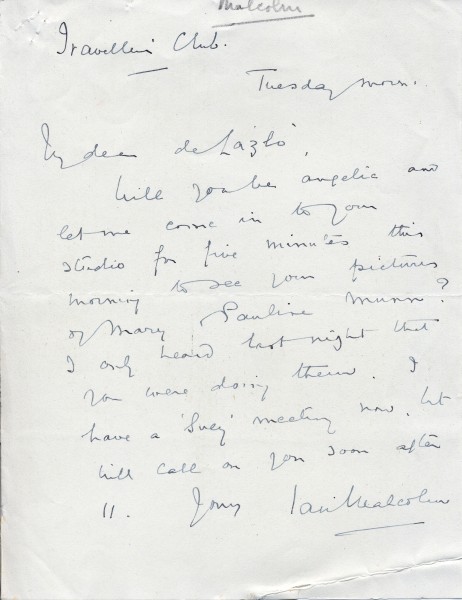 Malcolm
Travellers Club.
Tuesday morn.
My dear de László,
Will you be angelic and
let me come in to your
studio for five minutes this
morning to see your pictures
of Mary & Pauline Munn?
I only heard last night that
you were doing them. I
have a 'Suez' meeting now, but
will call on you soon after
11. Yours Ian Malcolm